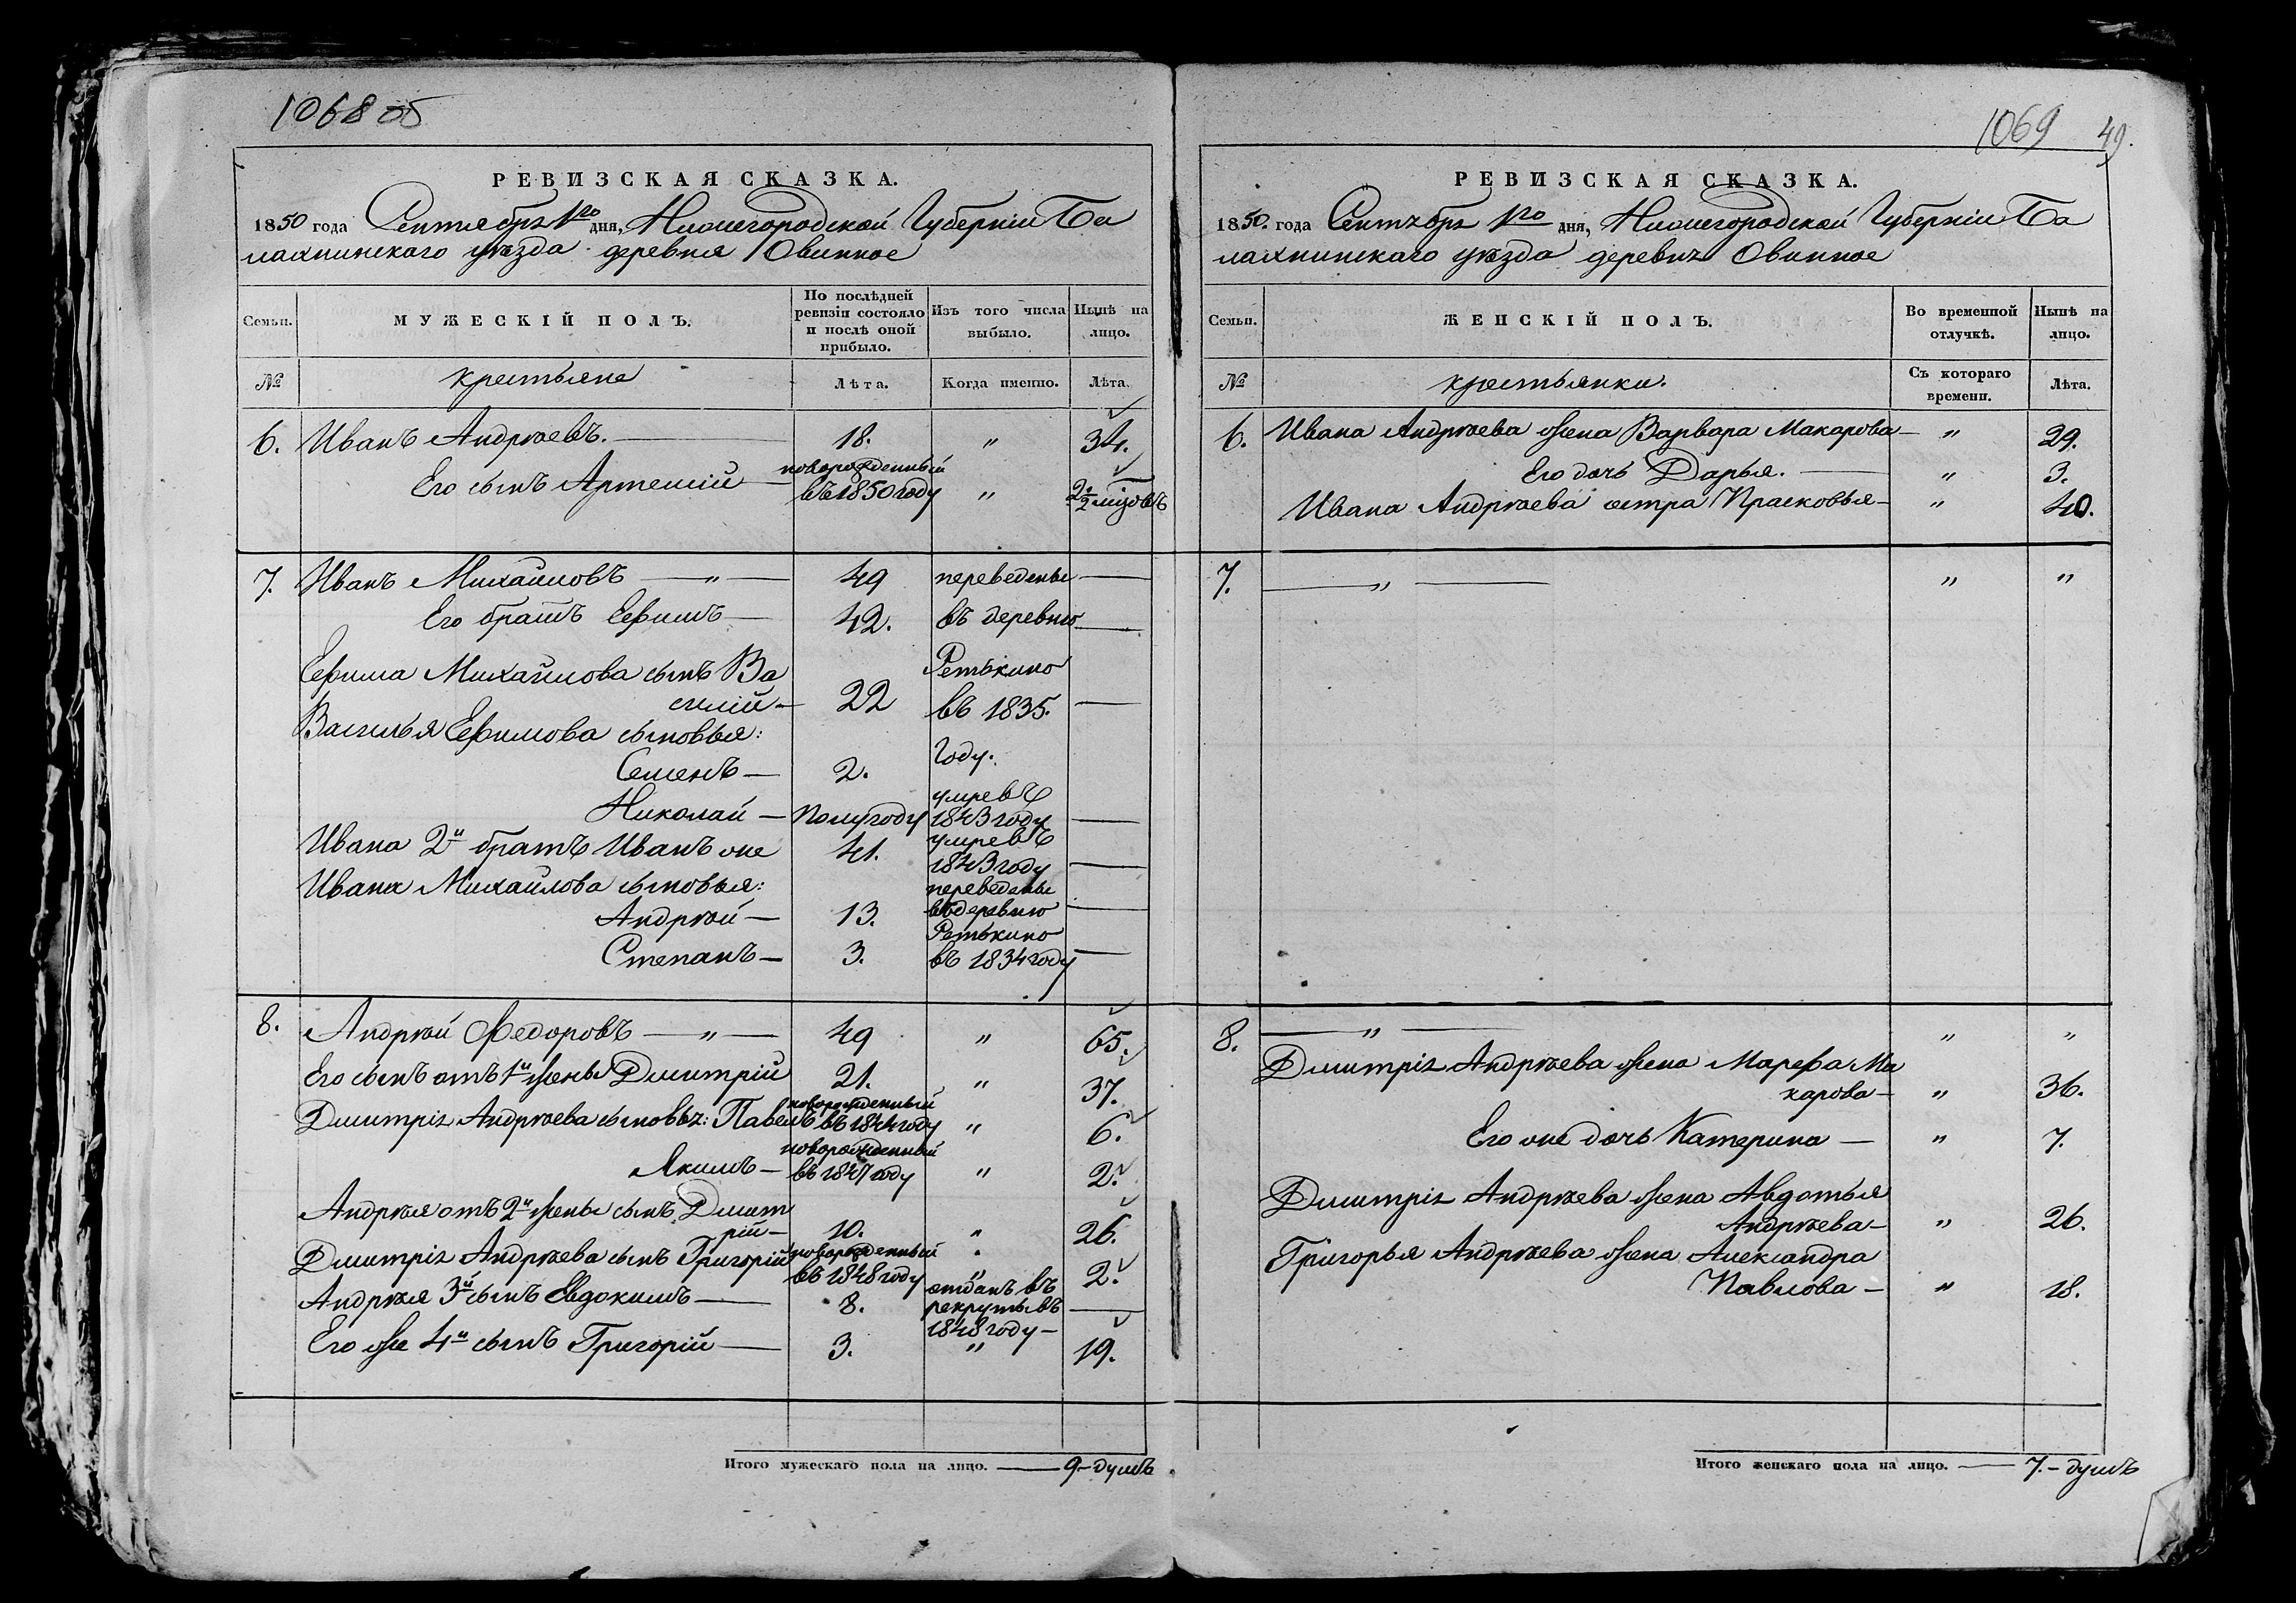 1068 об
РЕВИЗСКАЯ СКАЗКА.
1850 года Сентября 1го дня, Нижегородской Губерніи Ба
лахнинскаго уѣзда деревня Овинное
Семьи. МУЖЕСКІЙ ПОЛЪ. По послѣдней ревизіи состояло и послѣ оной прибыло. Изъ того числа выбыло. Нынѣ на лицо.
№ крестьяне Лѣта. Когда именно. Лѣта.
6. Иванъ Андрѣевъ. — 18. " 34.
Его сынъ Артемій — новорожденный въ 1850 году "
7. Иванъ Михайловъ — " — 49 переведены —
Его братъ Ефимъ — 42. въ деревню —
Ефима Михайлова сынъ Ва Ретькино
силій — 22 въ 1835. —
Василья Ефимова сыновья:
Семенъ — 2. году.
Николай — полугоду умре въ 1843 году —
Ивана 2й братъ Иванъ же 41. умре въ 1843 году —
Ивана Михайлова сыновья: переведены
Андрѣй — 13. въ деревню —
Ретькино
Степанъ — 3. въ 1834 году —
8. Андрѣй Федоровъ — " — 49 " 65.
Его сынъ отъ 1й жены Дмитрій 21. " 37.
Дмитрія Андрѣева сыновья: Павелъ новорожденный въ 1844 году " 6.
Якимъ — новорожденный въ 1847 году " 2.
Андрѣя отъ 2й жены сынъ Дмит
рій — 10. " 26.
Дмитрія Андрѣева сынъ Григорій новорожденный въ 1848 году " 2.
Андрѣя 3й сынъ Евдокимъ — 8. отданъ въ рекруты въ 1848 году —
Его же 4й сынъ Григорій — 3. " 19.
Итого мужескаго пола на лицо. — 9 — душъ
1069 49.
РЕВИЗСКАЯ СКАЗКА.
1850. года Сентября 1го дня, Нижегородской Губерніи Ба
лахнинскаго уѣзда деревня Овинное
Семьи. ЖЕНСКІЙ ПОЛЪ. Во временной отлучкѣ. Нынѣ на лицо.
№ крестьянки. Съ котораго времени. Лѣта.
6. Ивана Андрѣева жена Варвара Макарова — " 29.
Его дочь Дарья. — " 3.
Ивана Андрѣева сестра Прасковья — " 40.
7. — " — " "
8. — " — " "
Дмитрія Андрѣева жена Марефа Ма
карова — " 36.
Его же дочь Катерина — " 7.
Дмитрія Андрѣева жена Авдотья
Андрѣева — " 26.
Григорья Андрѣева жена Александра
Павлова — " 18.
Итого женскаго пола на лицо. — 7. — душъ